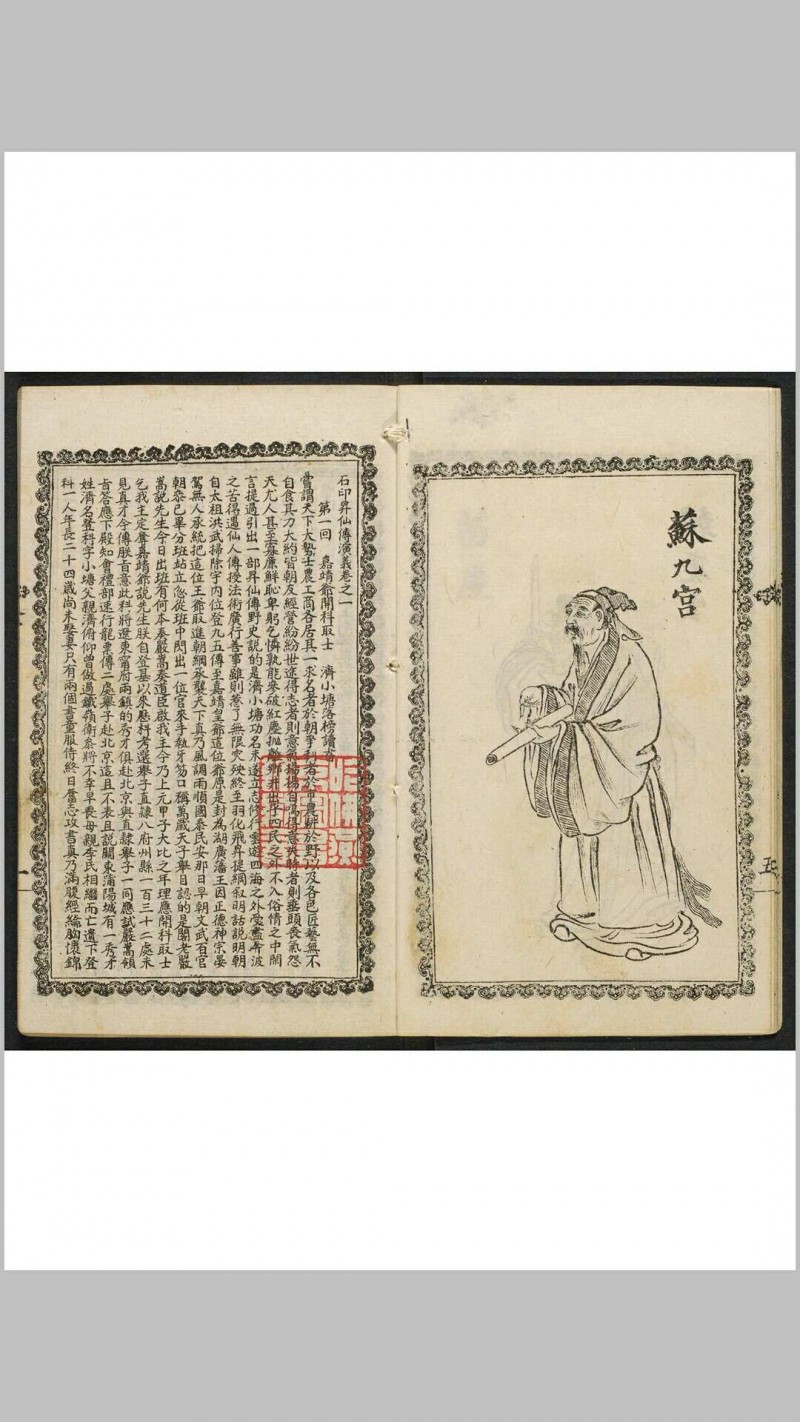 蘇九宮
五
石印昇仙傳演義卷之一
第一回　嘉靖爺開科取士　濟小塘落榜讀書
嘗謂天下大勢士農工商各居其一求名者於朝爭利者於市農耕於野以及各色匠藝無不
自食其力大約皆朝友經營紛紛世途得志者則意氣揚揚自鳴得意失時者則垂頭喪氣怨
天尤人甚至寡廉鮮恥卑躬乞憐孰能參破紅塵拋離鄉井出乎四民之外不入俗情之中閒
言提過引出一部昇仙傳野史說的是濟小塘功名未遂立志修行雲遊四海之外受盡奔波
之苦得遇仙人傳授法術廣行善事雖則惹了無限災殃終至羽化飛昇提綱叙明話說明朝
自太祖洪武掃除宇內位登九五傳至嘉靖皇爺這位爺原是封為湖廣藩王因正德神宗晏
駕無人承統把這位王爺取進朝綱承襲天下真乃風調雨順國泰民安那日早朝文武百官
朝叅已畢分班站立忽從班中閃出一位官來手執牙笏口稱萬歲天子舉目認的是閣老嚴
嵩說先生今日出班有何本奏嚴嵩奏道臣啟我主今乃上元甲子大比之年理應開科取士
乞我主定奪嘉靖爺說先生朕自登基以來歷科考選舉子直隸八府州縣一百三十二處未
見真才今傳朕旨意此科將遼東甯府兩鎮的秀才俱赴北京與直隸舉子一同應試嚴嵩領
旨答應下殿知會禮部速行龍票傳二處舉子赴北京這且不表且說關東蒲陽城有一秀才
姓濟名登科字小塘父親濟俯仰曾做過鐵嶺衛叅將不幸早喪母親李氏相繼而亡遺下登
科一人年長二十四歲尚未娶妻只有兩個書童服侍終日奮志攻書真乃滿腹經綸胸懷錦